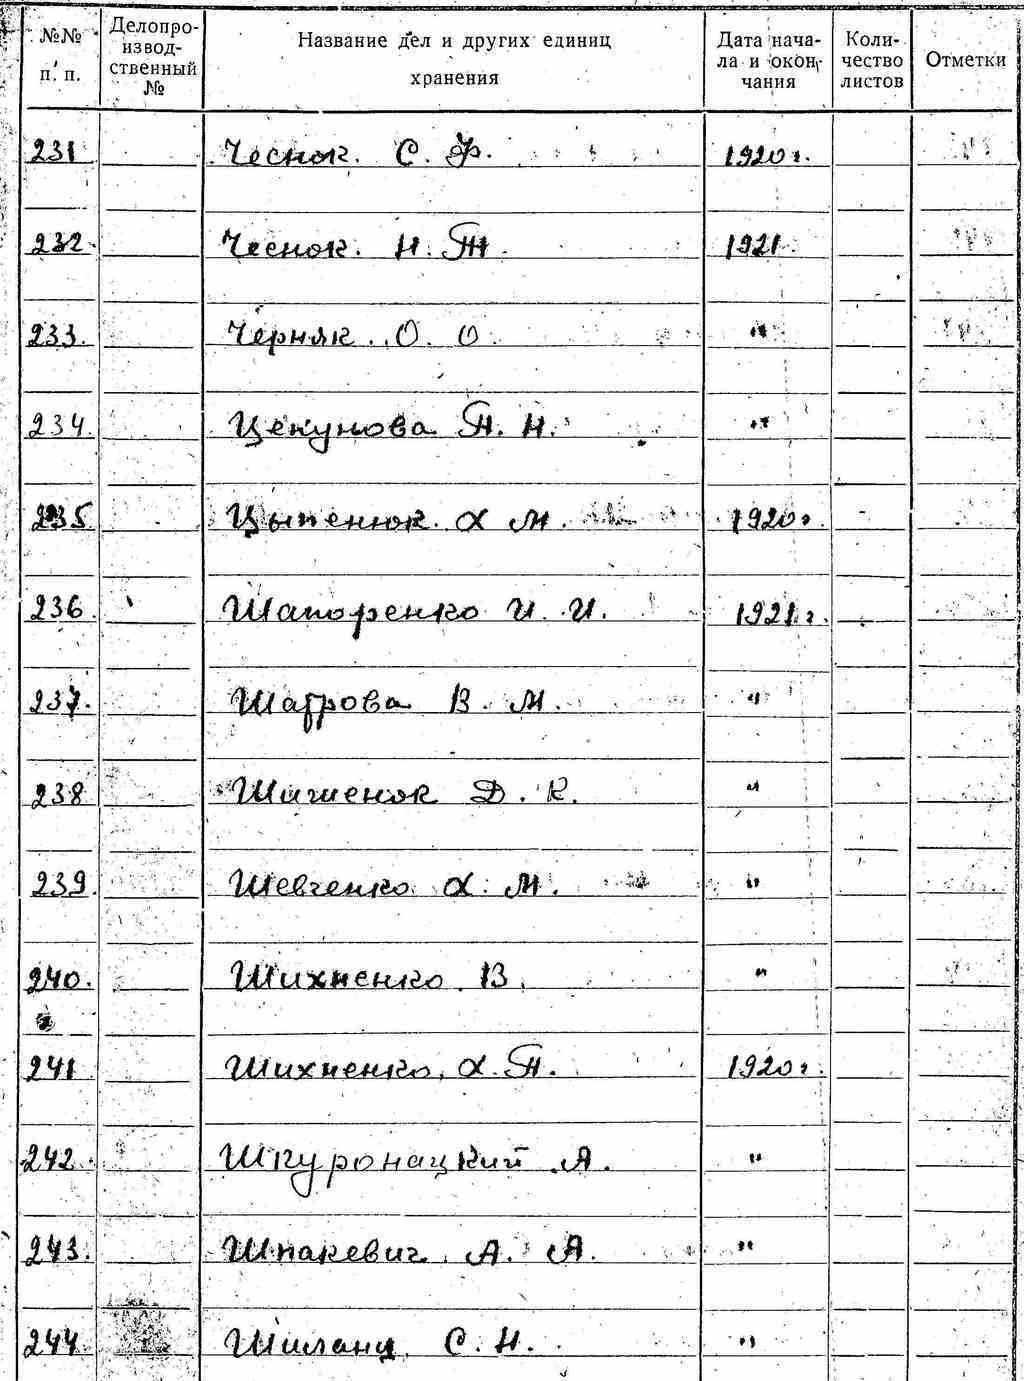 №№ п. п. Делопроизводственный № Название дел и других единиц хранения Дата начала и окончания Количество листов Отметки
231 Чеснок. С. Ф. 1920 г.
232. Чеснок. Н. П. 1921
233. Черняк. О. О. "
234. Цекунова П. Н. "
235. Цыпенюк. Х М. 1920 г
236. Шапоренко И. И. 1921 г.
237. Шагрова В. М. "
238 Шишенок Д. К. "
239. Шевченко Х. М. "
240. Шихненко. В. "
241 Шихненко, Х. П. 1920 г.
242. Шкуронацкий А. "
243. Шпакевич. А. А. "
244 С. Н. "